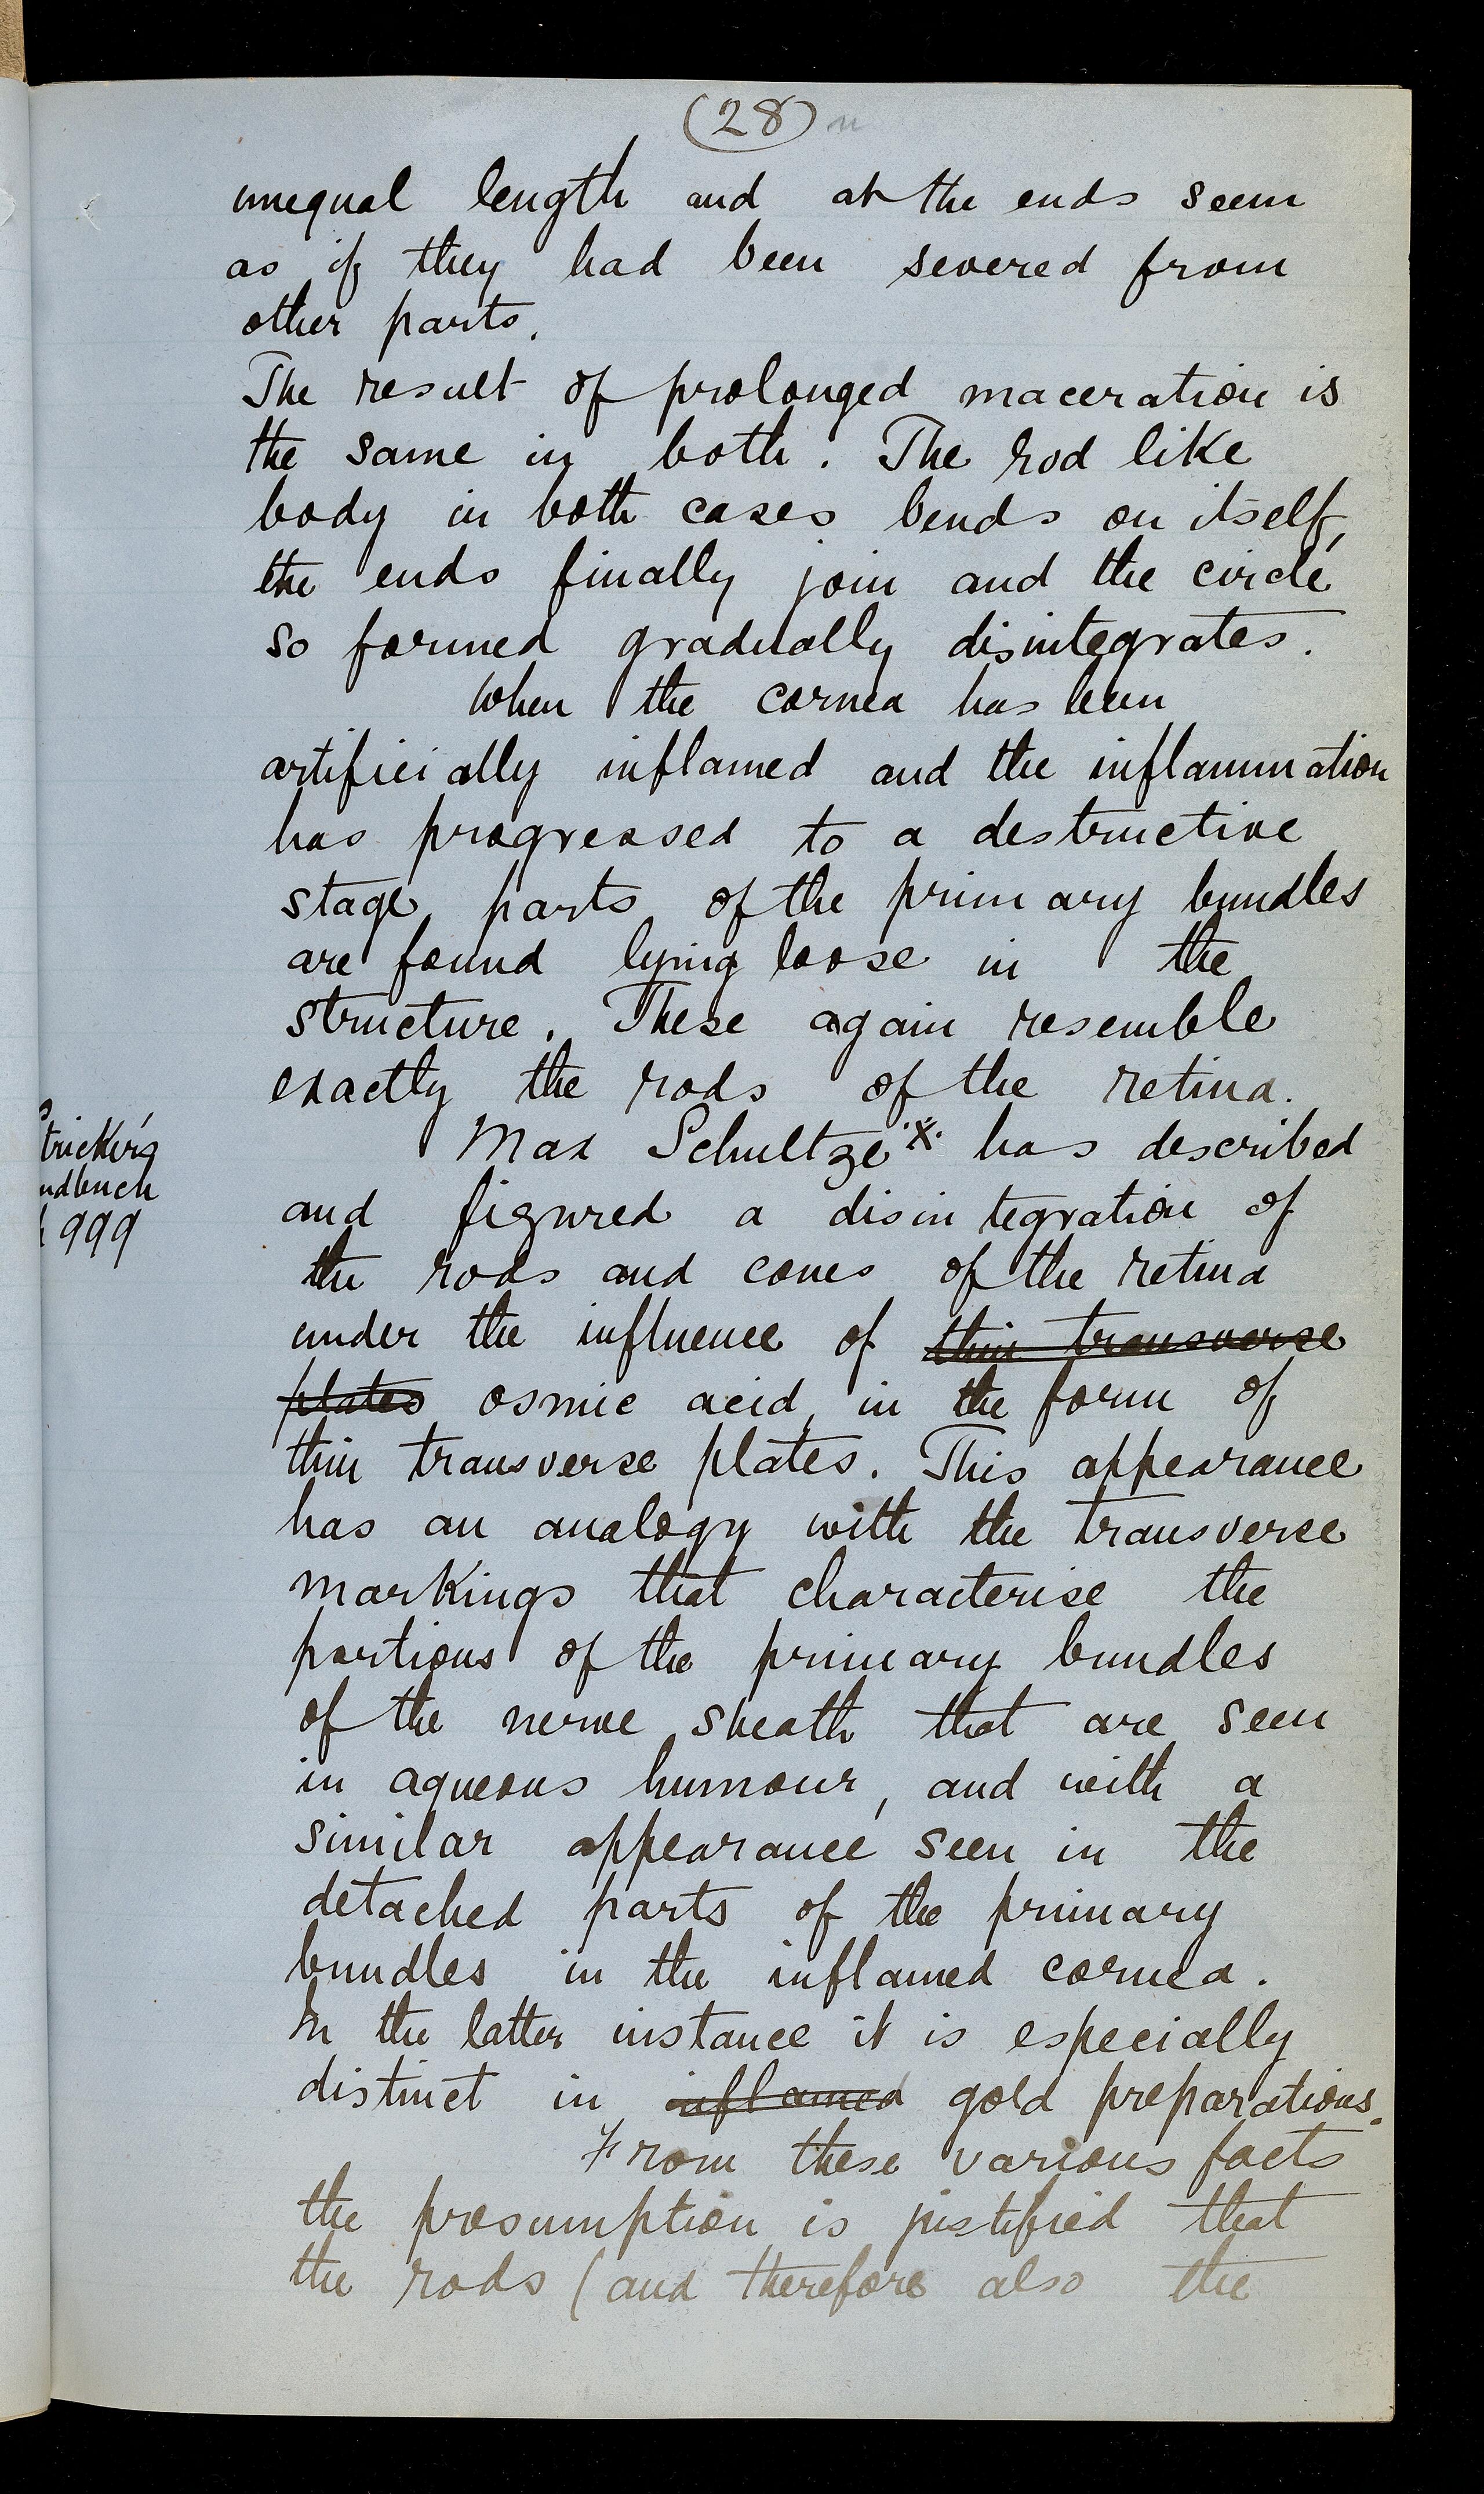 (28)
unequal length and at the ends seem
as if they had been severed from
other parts.
The result of prolonged maceration is
the same in both. The rod like
body in both cases bends on itself,
the ends finally join and the circle
so formed gradually disintegrates.
When the cornea has been
artificially inflamed and the inflammation
has progressed to a destructive
stage, parts of the primary bundles
are found lying loose in the
structure. These again resemble
exactly the rods of the retina.
Max Schultze x has described
tricker's
ndbuch
999
and figured a disintegration of
the rods and cones of the retina
under the influence of thin transverse
plates osmic acid, in the form of
thin transverse plates. This appearance
has an analogy with the transverse
markings that characterise the
portions of the primary bundles
of the nerve sheath that are seen
in aqueous humour, and with a
similar appearance seen in the
detached parts of the primary
bundles in the inflamed cornea.
In the latter instance it is especially
distinct in inflamed gold preparations.
From these various facts
the presumption is justified that
the rods (and therefore also the